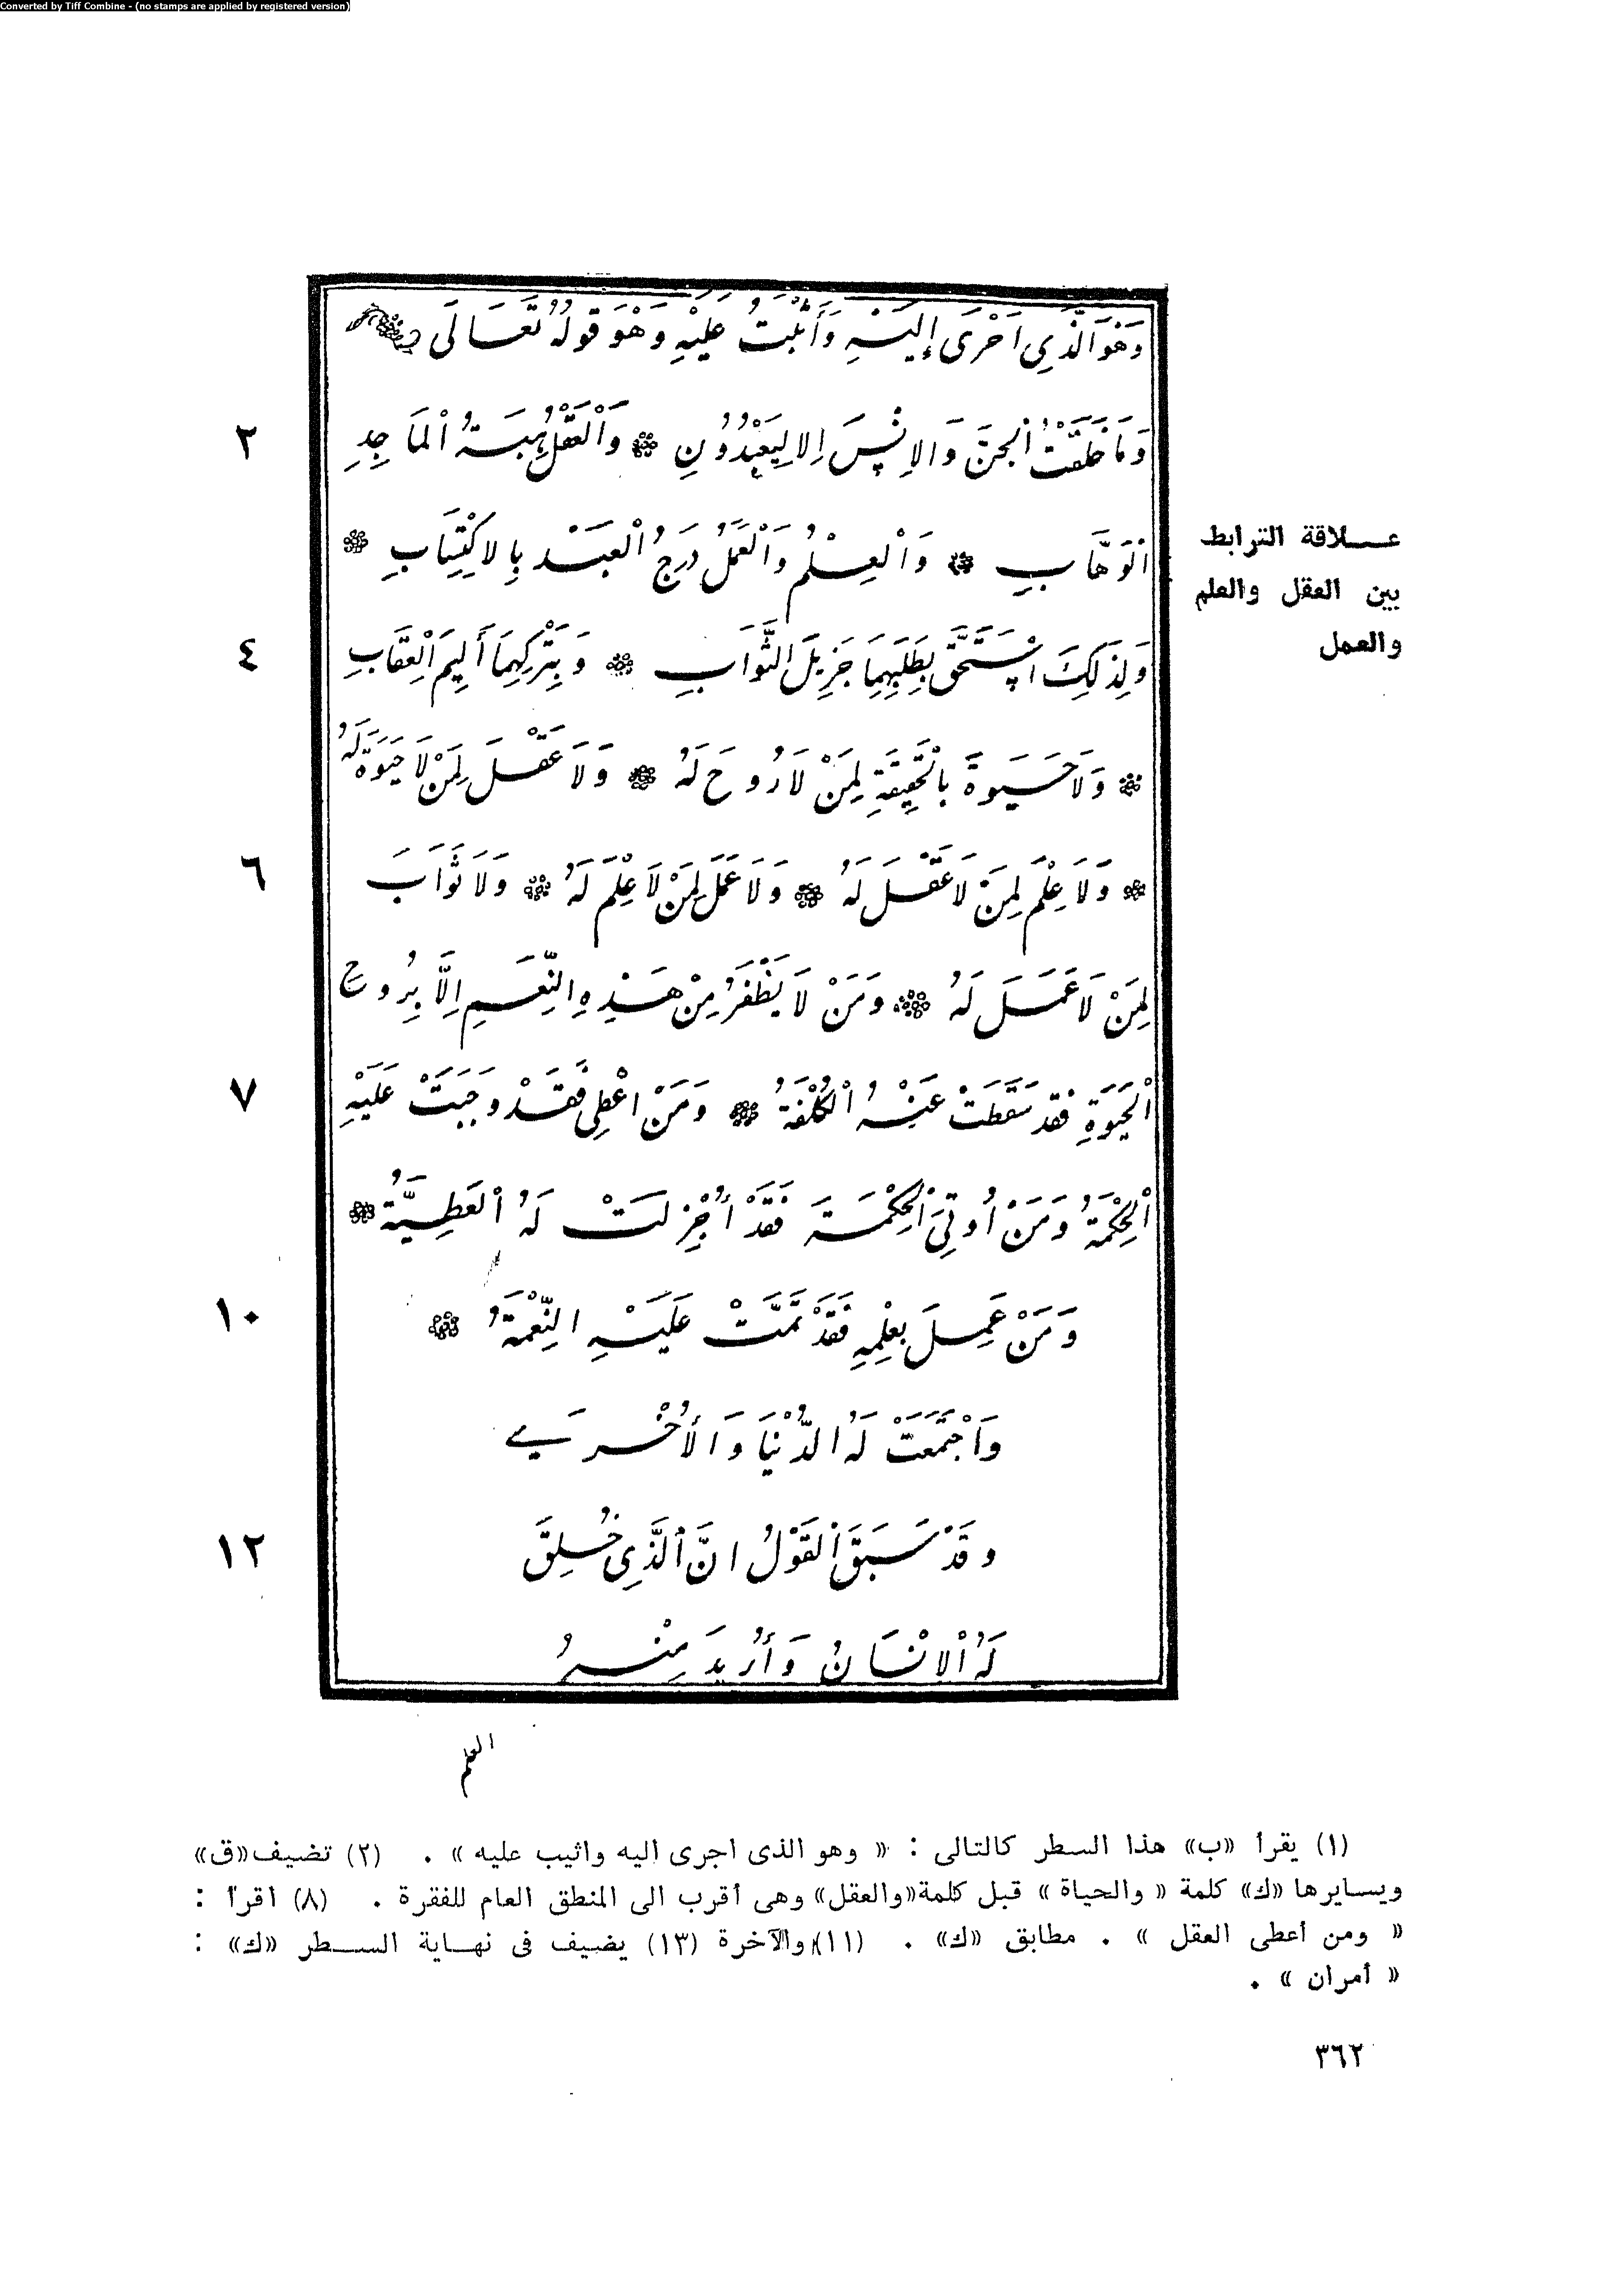 Converted by Tiff Combine - (no stamps are applied by registered version)
وَهُوَ الَّذِي أَجْرَى إِلَيْهِ وَأُثِيبُ عَلَيْهِ وَهُوَ قَوْلُهُ تَعَالَى
٢
وَمَا خَلَقْتُ الْجِنَّ وَالإِنْسَ إِلا لِيَعْبُدُونِ ۞ وَالْعَقْلُ هِبَةُ الْمَاجِدِ
الْوَهَّابِ ۞ وَالْعِلْمُ وَالْعَمَلُ دَرَجُ الْعَبْدِ بِالاكْتِسَابِ ۞
علاقة الترابط
بين العقل والعلم
والعمل
٤
وَلِذَلِكَ اسْتَحَقَّ بِطَلَبِهِمَا جَزِيلَ الثَّوَابِ ۞ وَبِتَرْكِهِمَا أَلِيمَ الْعِقَابِ
۞ وَلَا حَيَوةَ بِالْحَقِيقَةِ لِمَنْ لَا رُوحَ لَهُ ۞ وَلَا عَقْلَ لِمَنْ لَا حَيَوةَ لَهُ
٦
۞ وَلَا عِلْمَ لِمَنْ لَا عَقْلَ لَهُ ۞ وَلَا عَمَلَ لِمَنْ لَا عِلْمَ لَهُ ۞ وَلَا ثَوَابَ
لِمَنْ لَا عَمَلَ لَهُ ۞ وَمَنْ لَا يَظْفَرُ مِنْ هَذِهِ النِّعَمِ إِلَّا بِرُوحِ
٧
الْحَيَوةِ فَقَدْ سَقَطَتْ عَنْهُ الْكُلْفَةُ ۞ وَمَنْ اُعْطِى فَقَدْ وَجَبَتْ عَلَيْهِ
الْحِكْمَةُ وَمَنْ أُوتِيَ الْحِكْمَةَ فَقَدْ أُجْزِلَتْ لَهُ الْعَطِيَّةُ ۞
١٠
وَمَنْ عَمِلَ بِعِلْمِهِ فَقَدْ تَمَّتْ عَلَيْهِ النِّعْمَةُ ۞
وَاجْتَمَعَتْ لَهُ الدُّنْيَا وَالأُخْرَى
١٢
وَقَدْ سَبَقَ الْقَوْلُ انَّ الَّذِي خُلِقَ
لَهُ الإنْسَانُ وَأُرِيدَ مِنْهُ
العلم
(١) يقرأ «ب» هذا السطر كالتالى : « وهو الذى اجرى اليه واثيب عليه » . (٢) تضيف «ق»
ويسايرها «ك» كلمة « والحياة » قبل كلمة «والعقل» وهى أقرب الى المنطق العام للفقرة . (٨) اقرأ :
« ومن أعطى العقل » . مطابق «ك» . (١١) والآخرة (١٣) يضيف فى نهاية السطر «ك» :
« أمران » .
٣٦٢